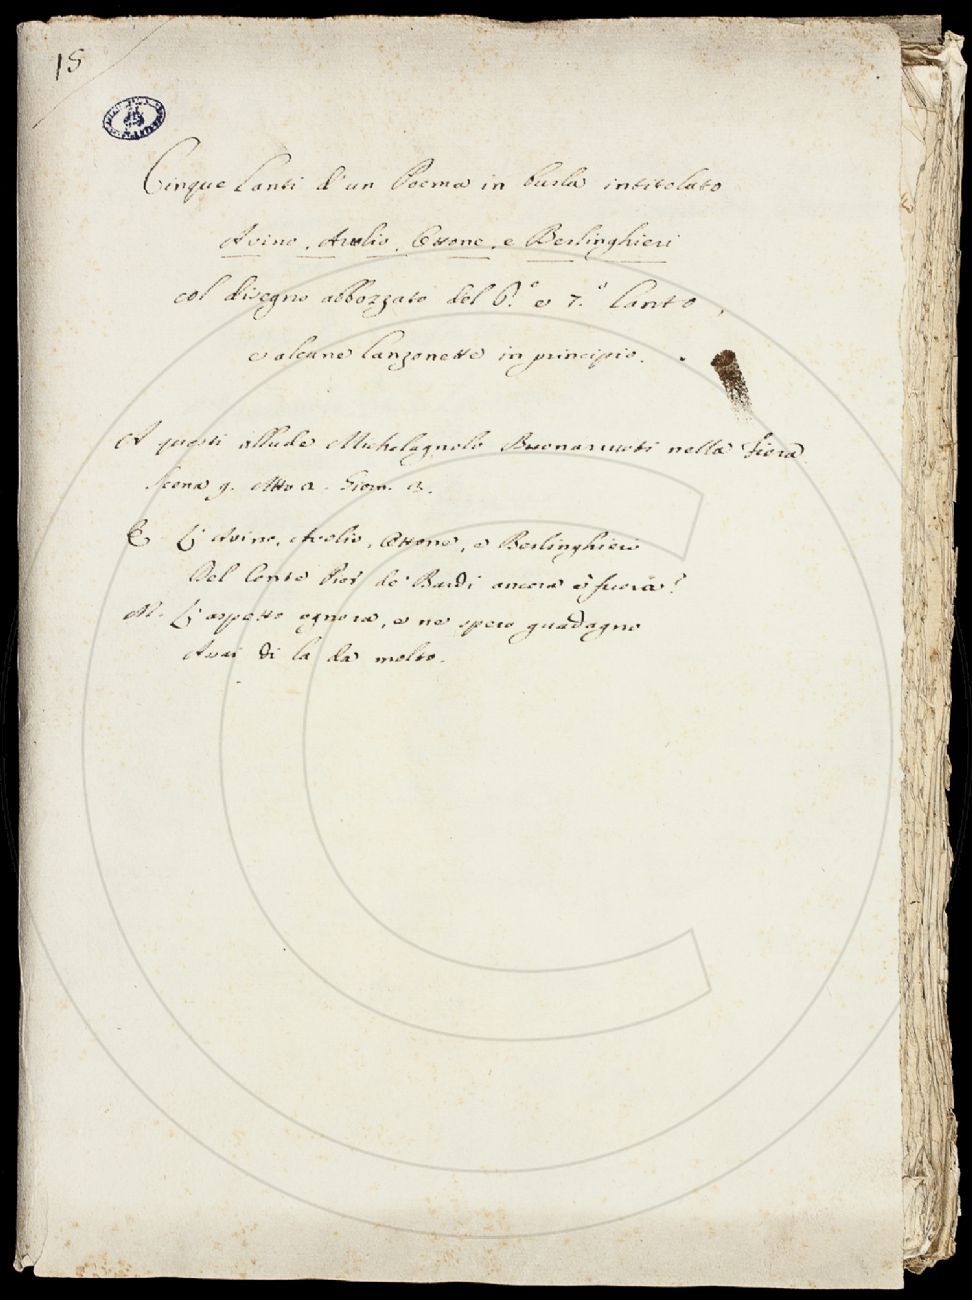 15
Cinque Canti d'un Poema in burla intitolato
Avino, Avolio, Ottone, e Berlinghieri
col disegno abbozzato del 6.° e 7.° Canto,
e alcune Canzonette in principio.
A questi allude Michelagnolo Buonarruoti nella Fiera
Scena 9. Atto 2. Giorn. 3.
E. L'Avino, Avolio, Ottone, e Berlinghieri
Del Conte Pier de' Bardi ancora è fuora?
M. L'aspetto ognora, e ne spero guadagno
Assai di la da molto.